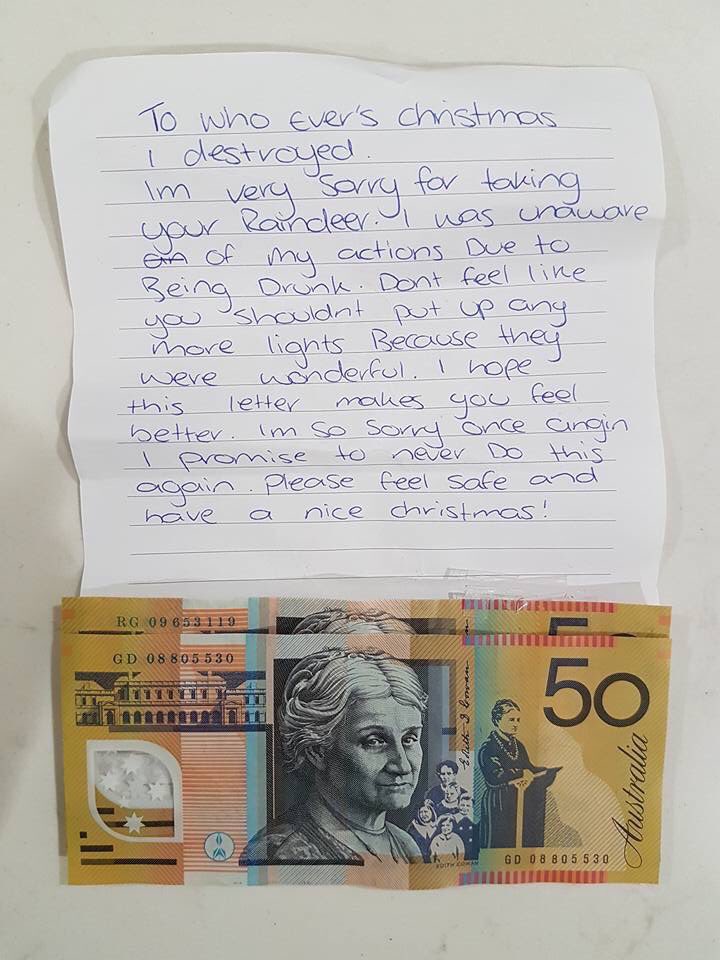 To who Ever's christmas
I destroyed.
Im very sorry for taking
your Raindeer. I was unaware
of my actions Due to
Being Drunk. Dont feel like
you shouldnt put up any
more lights Because they
were wonderful. I hope
this letter makes you feel
better. Im so sorry once angin
I promise to never Do this
again. Please feel safe and
have a nice christmas!
RG 09653119
GD 08805530
50
Edith D Cowan
Australia
EDITH COWAN
GD 08805530